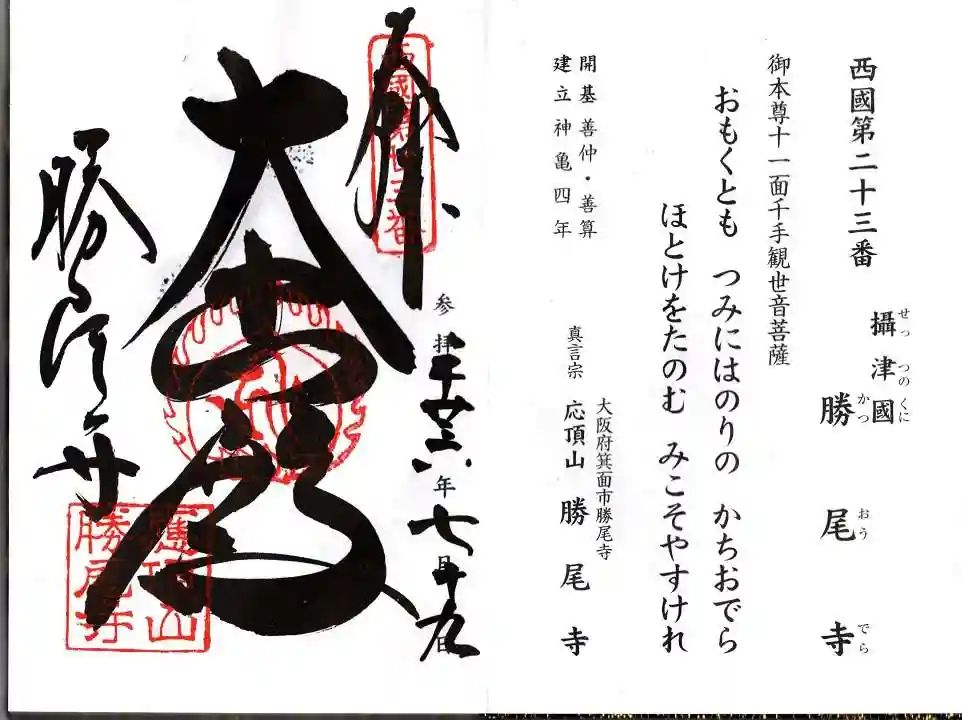 西國第二十三番
攝津國
せっ つの くに
勝尾寺
かつ おう でら
御本尊十一面千手観世音菩薩
おもくとも つみにはのりの かちおでら
ほとけをたのむ みこそやすけれ
開基善仲・善算
建立神亀四年
大阪府箕面市勝尾寺
真言宗 応頂山 勝尾寺
参拝
年七月十九日
奉拝
西國第廿三番
大悲殿
勝尾寺
應頂山
勝尾寺